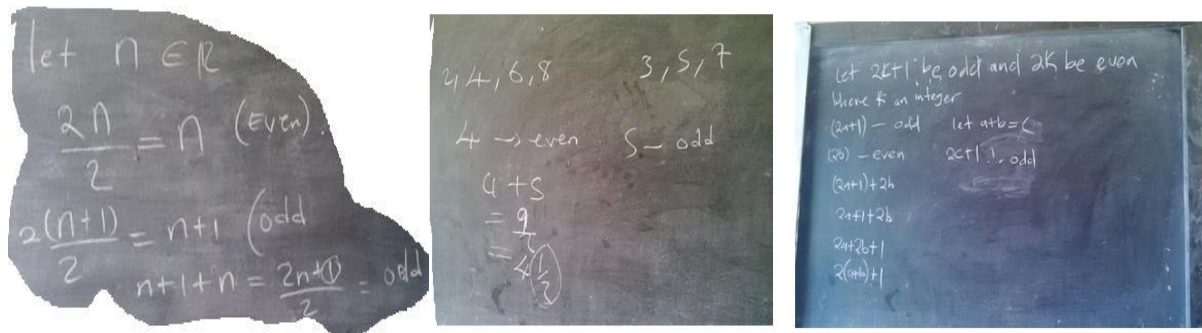 let n ∈ ℝ
2n/2 = n (Even)
2(n+1)/2 = n+1 (odd
n+1+n = 2n+1/2 = odd
4,4,6,8 3,5,7
4 → even 5 – odd
4+5
= 9/2
= 4 1/2
Let 2k+1 be odd and 2k be even
Where k an integer
(2a+1) – odd let a+b = c
(2b) – even 2c+1 ∴ odd
(2a+1)+2b
2a+1+2b
2a+2b+1
2(a+b)+1